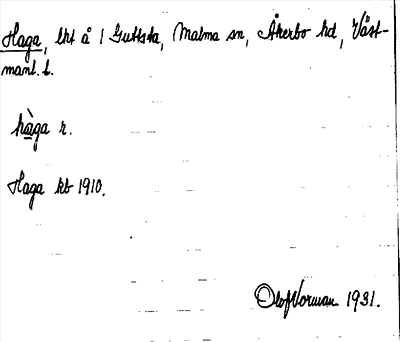 Haga, lht å 1 Guttsta, Malma sn, Åkerbo hd, Väst-
manl. l.
hàga r.
Haga kb 1910.
Olof Vorman 1931.